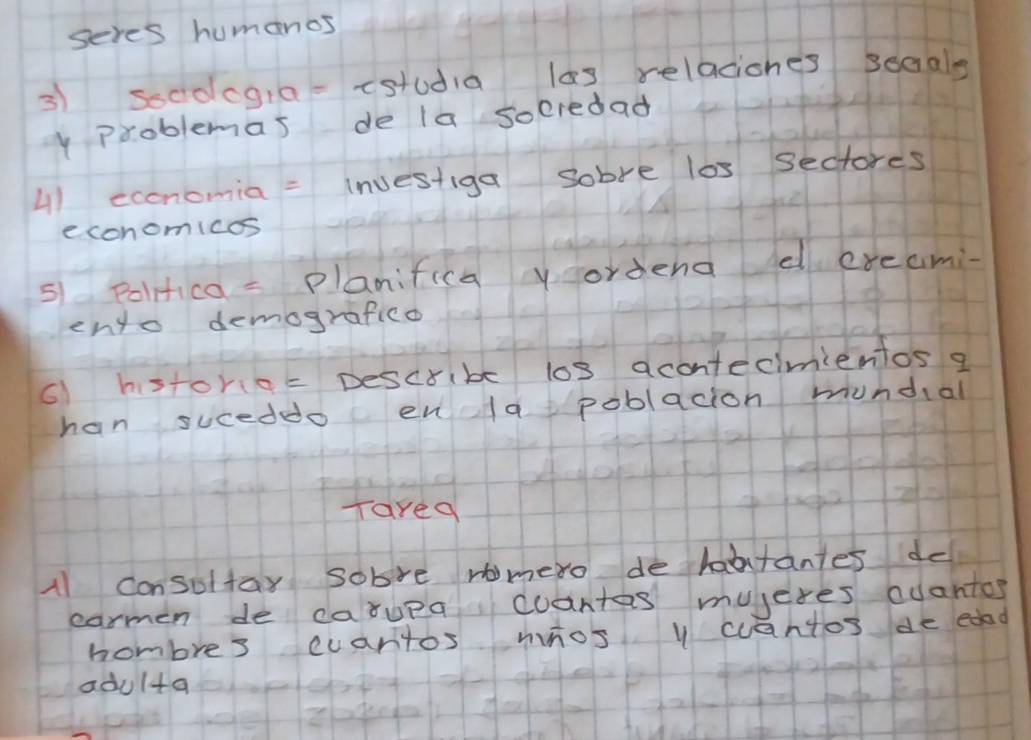 seres humanos
3) Sociología = estudia las relaciones sociales
y problemas de la sociedad
4) economia = investiga sobre los sectores
economicos
5) Politica = Planifica y ordena el crecimi-
ento demográfico
6) historia = Describe los acontecimientos q
han sucedido en la poblacion mundial
Tarea
1) consultar sobre número de habitantes de
carmen de carupa cuantas mujeres cuantos
hombres cuantos niños y cuántos de edad
adulta